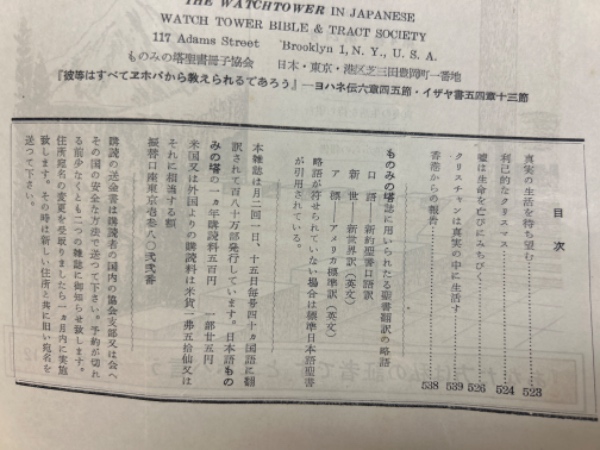 THE WATCHTOWER IN JAPANESE
WATCH TOWER BIBLE & TRACT SOCIETY
117 Adams Street Brooklyn 1, N. Y., U. S. A.
ものみの塔聖書冊子協会 日本・東京・港区芝三田豊岡町一番地
『彼等はすべてヱホバから教えられるであろう』―ヨハネ伝六章四五節・イザヤ書五四章十三節
目次
真実の生活を待ち望む……523
利己的なクリスマス……524
嘘は生命を亡びにみちびく……526
クリスチャンは真実の中に生活す……539
香港からの報告……538
ものみの塔誌に用いられたる聖書翻訳の略語
口語――新約聖書口語訳
新世――新世界訳（英文）
ア標――アメリカ標準訳（英文）
略語が附せられていない場合は標準日本語聖書
が引用されている。
本雑誌は月二回一日、十五日毎号四十ヵ国語に翻
訳されて百八十万部発行しています。日本語もの
みの塔の一ヵ年購読料五百円 一部廿五円
米国又は外国よりの購読料は米貨一弗五拾仙又は
それに相当する額
振替口座東京壱巻八〇弐弐番
購読の送金書は購読者の国内の協会支部又は会へ
その国の安全な方法で送って下さい。予約が切れ
る前少なくとも二つの雑誌に御知らせ致します。
住所宛名の変更を受取りましたら一ヵ月内に実施
致します。その時は新しい住所と共に旧い宛名を
送って下さい。